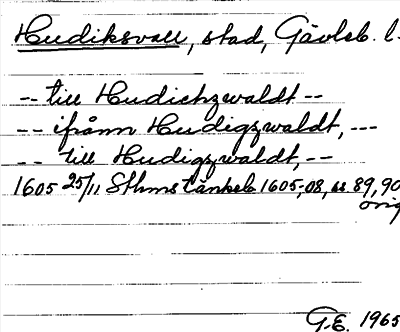 Hudiksvall, stad, Gävleb. l.
-- till Hudichzwaldt --
-- ifrånn Hudigzwaldt, ---
-- till Hudigzwaldt, --
1605 25/11 Sthms tänkeb 1605-08, ss 89, 90
orig
G.E. 1965